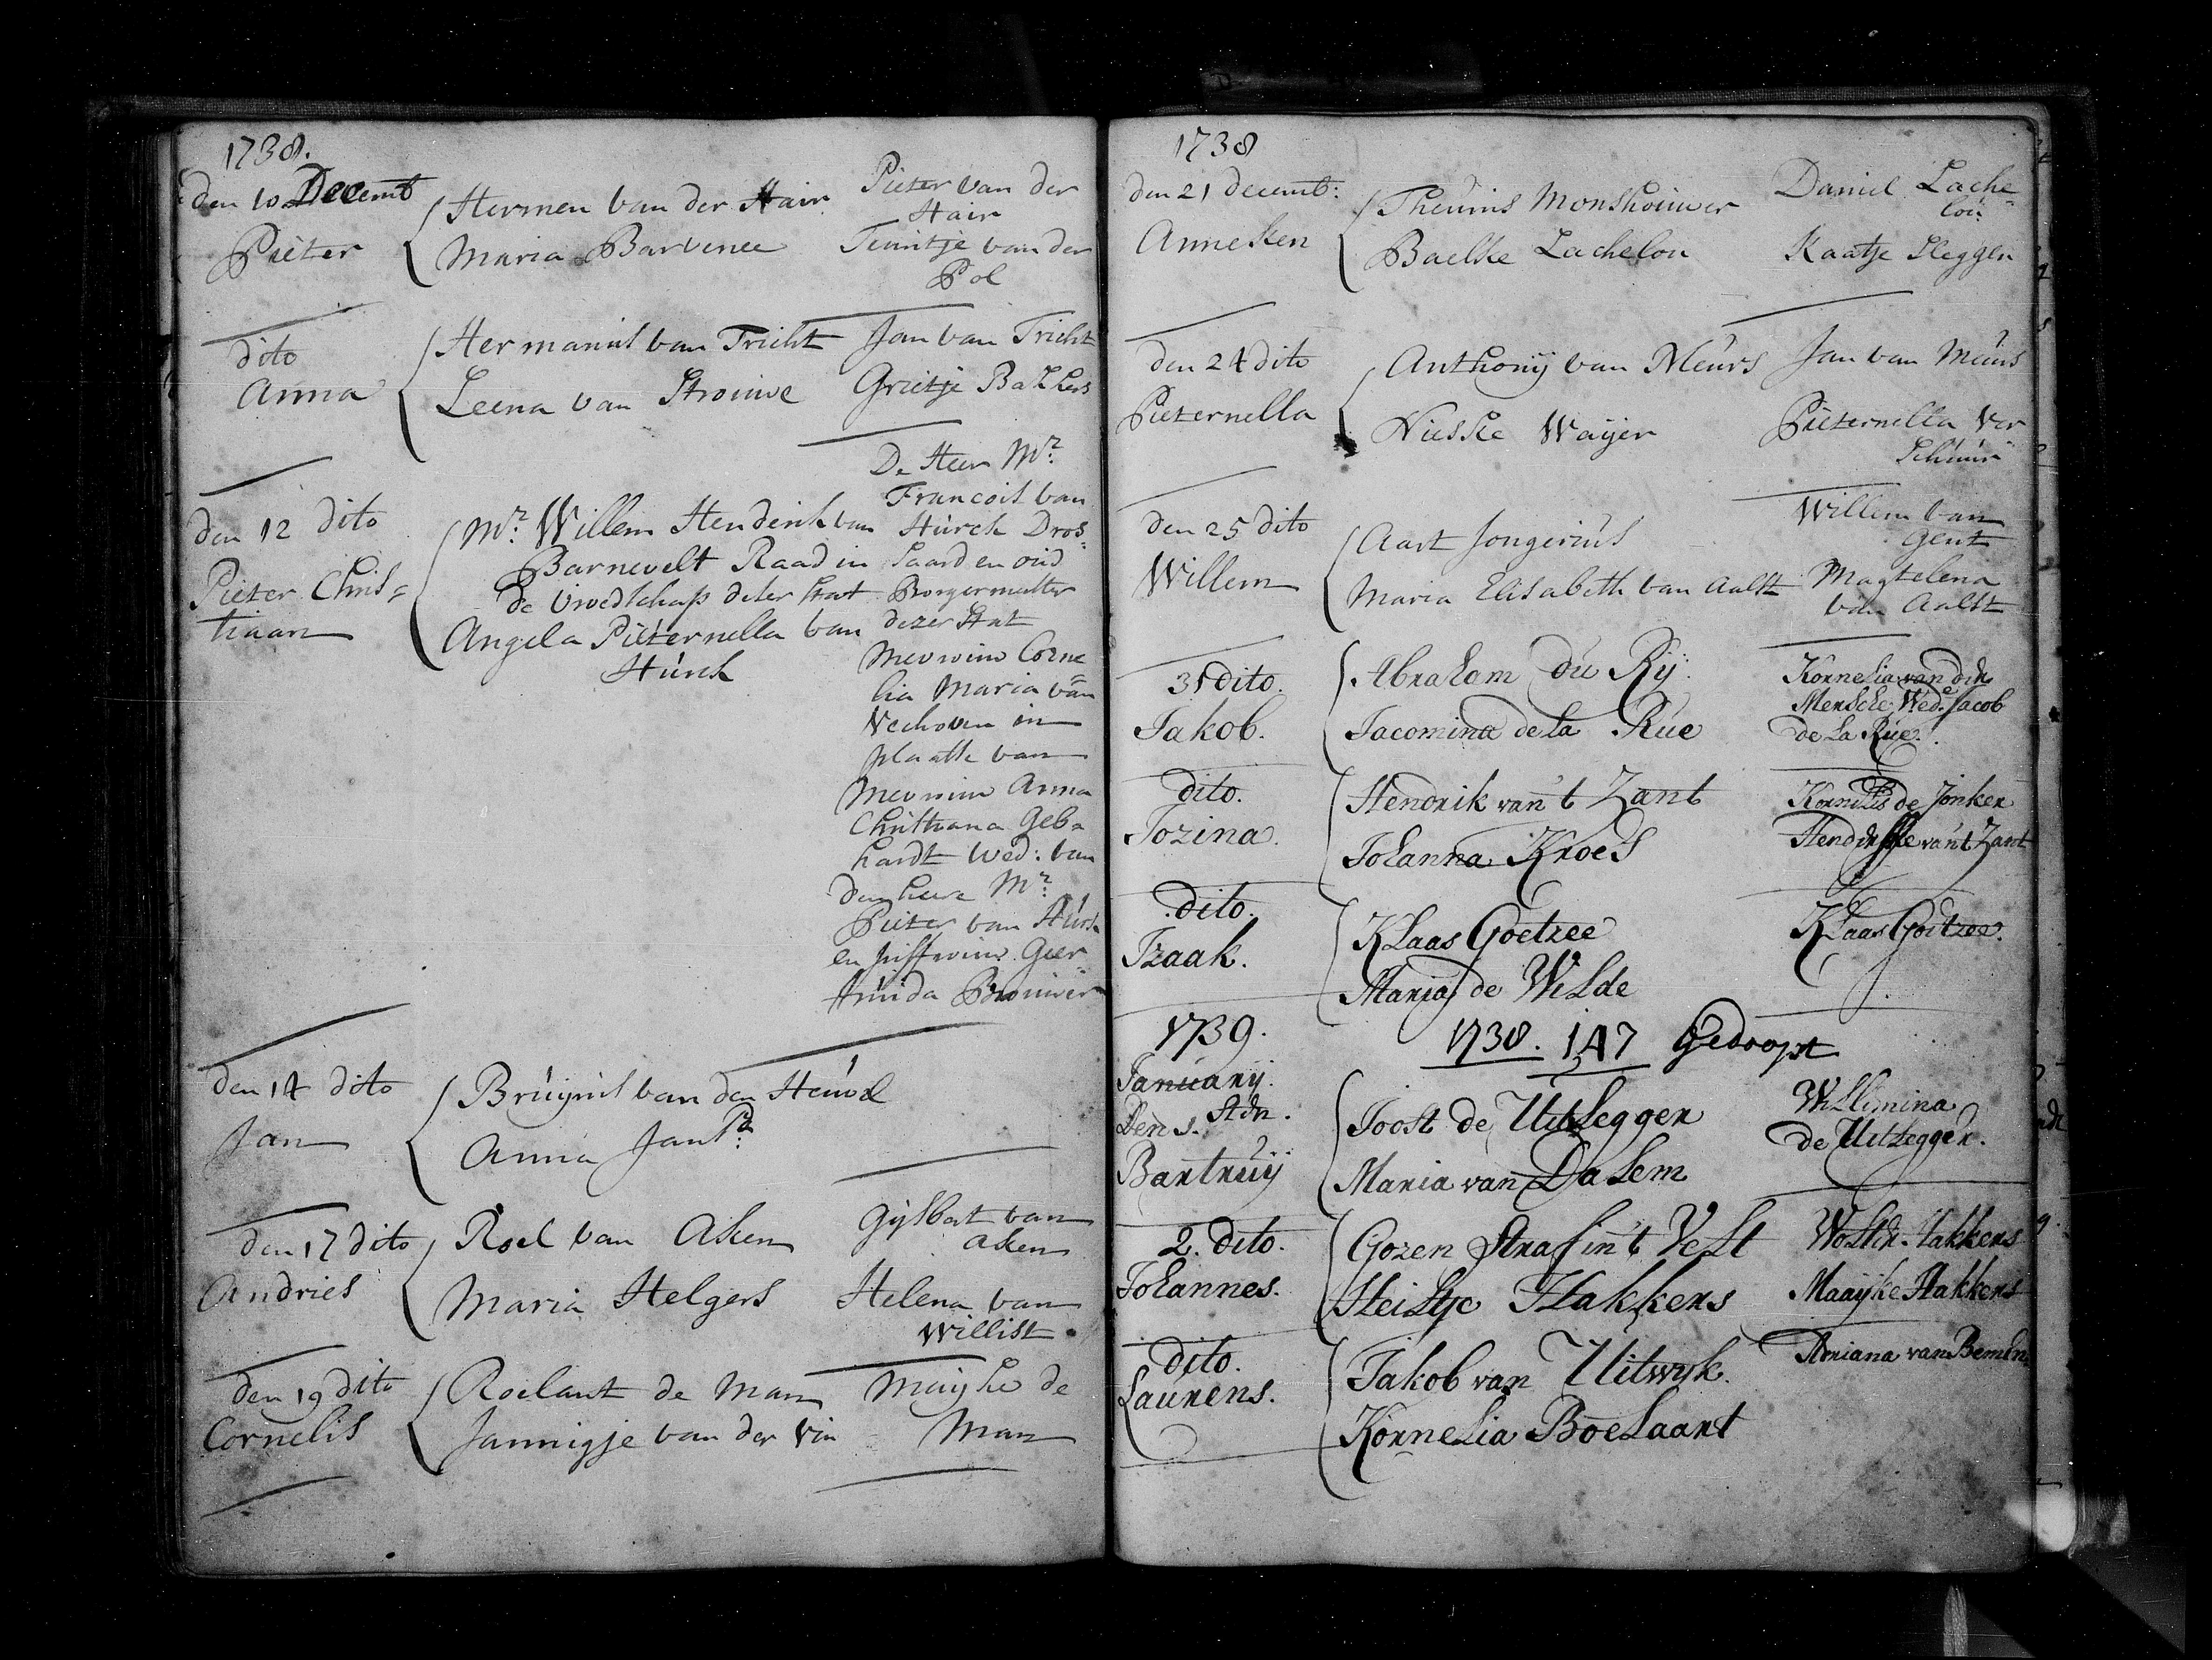 1738.
den 10 Decemb
Pieter
Hermen van der Hair
Maria Barvenee
Pieter van der
Hair
Teuntje van der
Pol
dito
Anna
Hermanus van Tricht
Leena van Strouwe
Jan van Tricht
Grietje Bakkers
den 12 dito
Pieter Chris=
tiaan
Mr. Willem Hendrik van
Barnevelt Raad in
de vroedschap deser stat
Angela Pieternella van
Hurck
De Heer Mr.
Francois van
Hurck Dros=
saard en oud
Borgermeester
dezer Stat
Mevrouw Corne
lia Maria van
Vechoven in
plaatse van
Mevrouw Anna
Christiana Geb=
hardt wed: van
den heere Mr.
Pieter van Hurck
en Juffrouw Geer
truida Brouwer
den 14 dito
Jan
Bruynis van den Heuvel
Anna Jans
den 17 dito
Andries
Roel van Aken
Maria Helgers
Gysbert van
aken
Helena van
Willist
den 19 dito
Cornelis
Roelant de Man
Jannigje van der Vin
Mayke de
Man
1738
den 21 decemb:
Anneken
Theunis Monshouwer
Baelke Lachelou
Daniel Lache=
lou
Kaatje Sleggen
den 24 dito
Pieternella
Anthony van Meurs
Nieske Wayer
Jan van Meurs
Pieternella Ver
Schuur
den 25 dito
Willem
Aart Jongerius
Maria Elisabeth van Aalst
Willem van
Gent
Magtelena
van Aalst
31 dito.
Jakob.
Abraham du Ry.
Jacomina de la Rue
Kornelia van den
Mensche Wede. Jacob
de La Rue.
dito.
Jozina.
Hendrik van 't Zant
Johanna Kroes
Kornelis de Jonker
Hendrikje van 't Zant
dito.
Izaak.
Klaas Goetzee
Maria de Wilde
Klaas Goetzee.
1739.
1738. 147 Gedoopt
January.
Den 1. Stdn.
Bartruy
Joost de Uitlegger
Maria van Dalem
Willimina
de Uitlegger.
2. dito.
Johannes.
Gozen Straf in 't Velt
Heiltje Hakkers
Wolter Hakkers
Maayke Hakkers
dito.
Laurens.
Jakob van Uitwyk.
Kornelia Boelaart
Adriana van Bemen